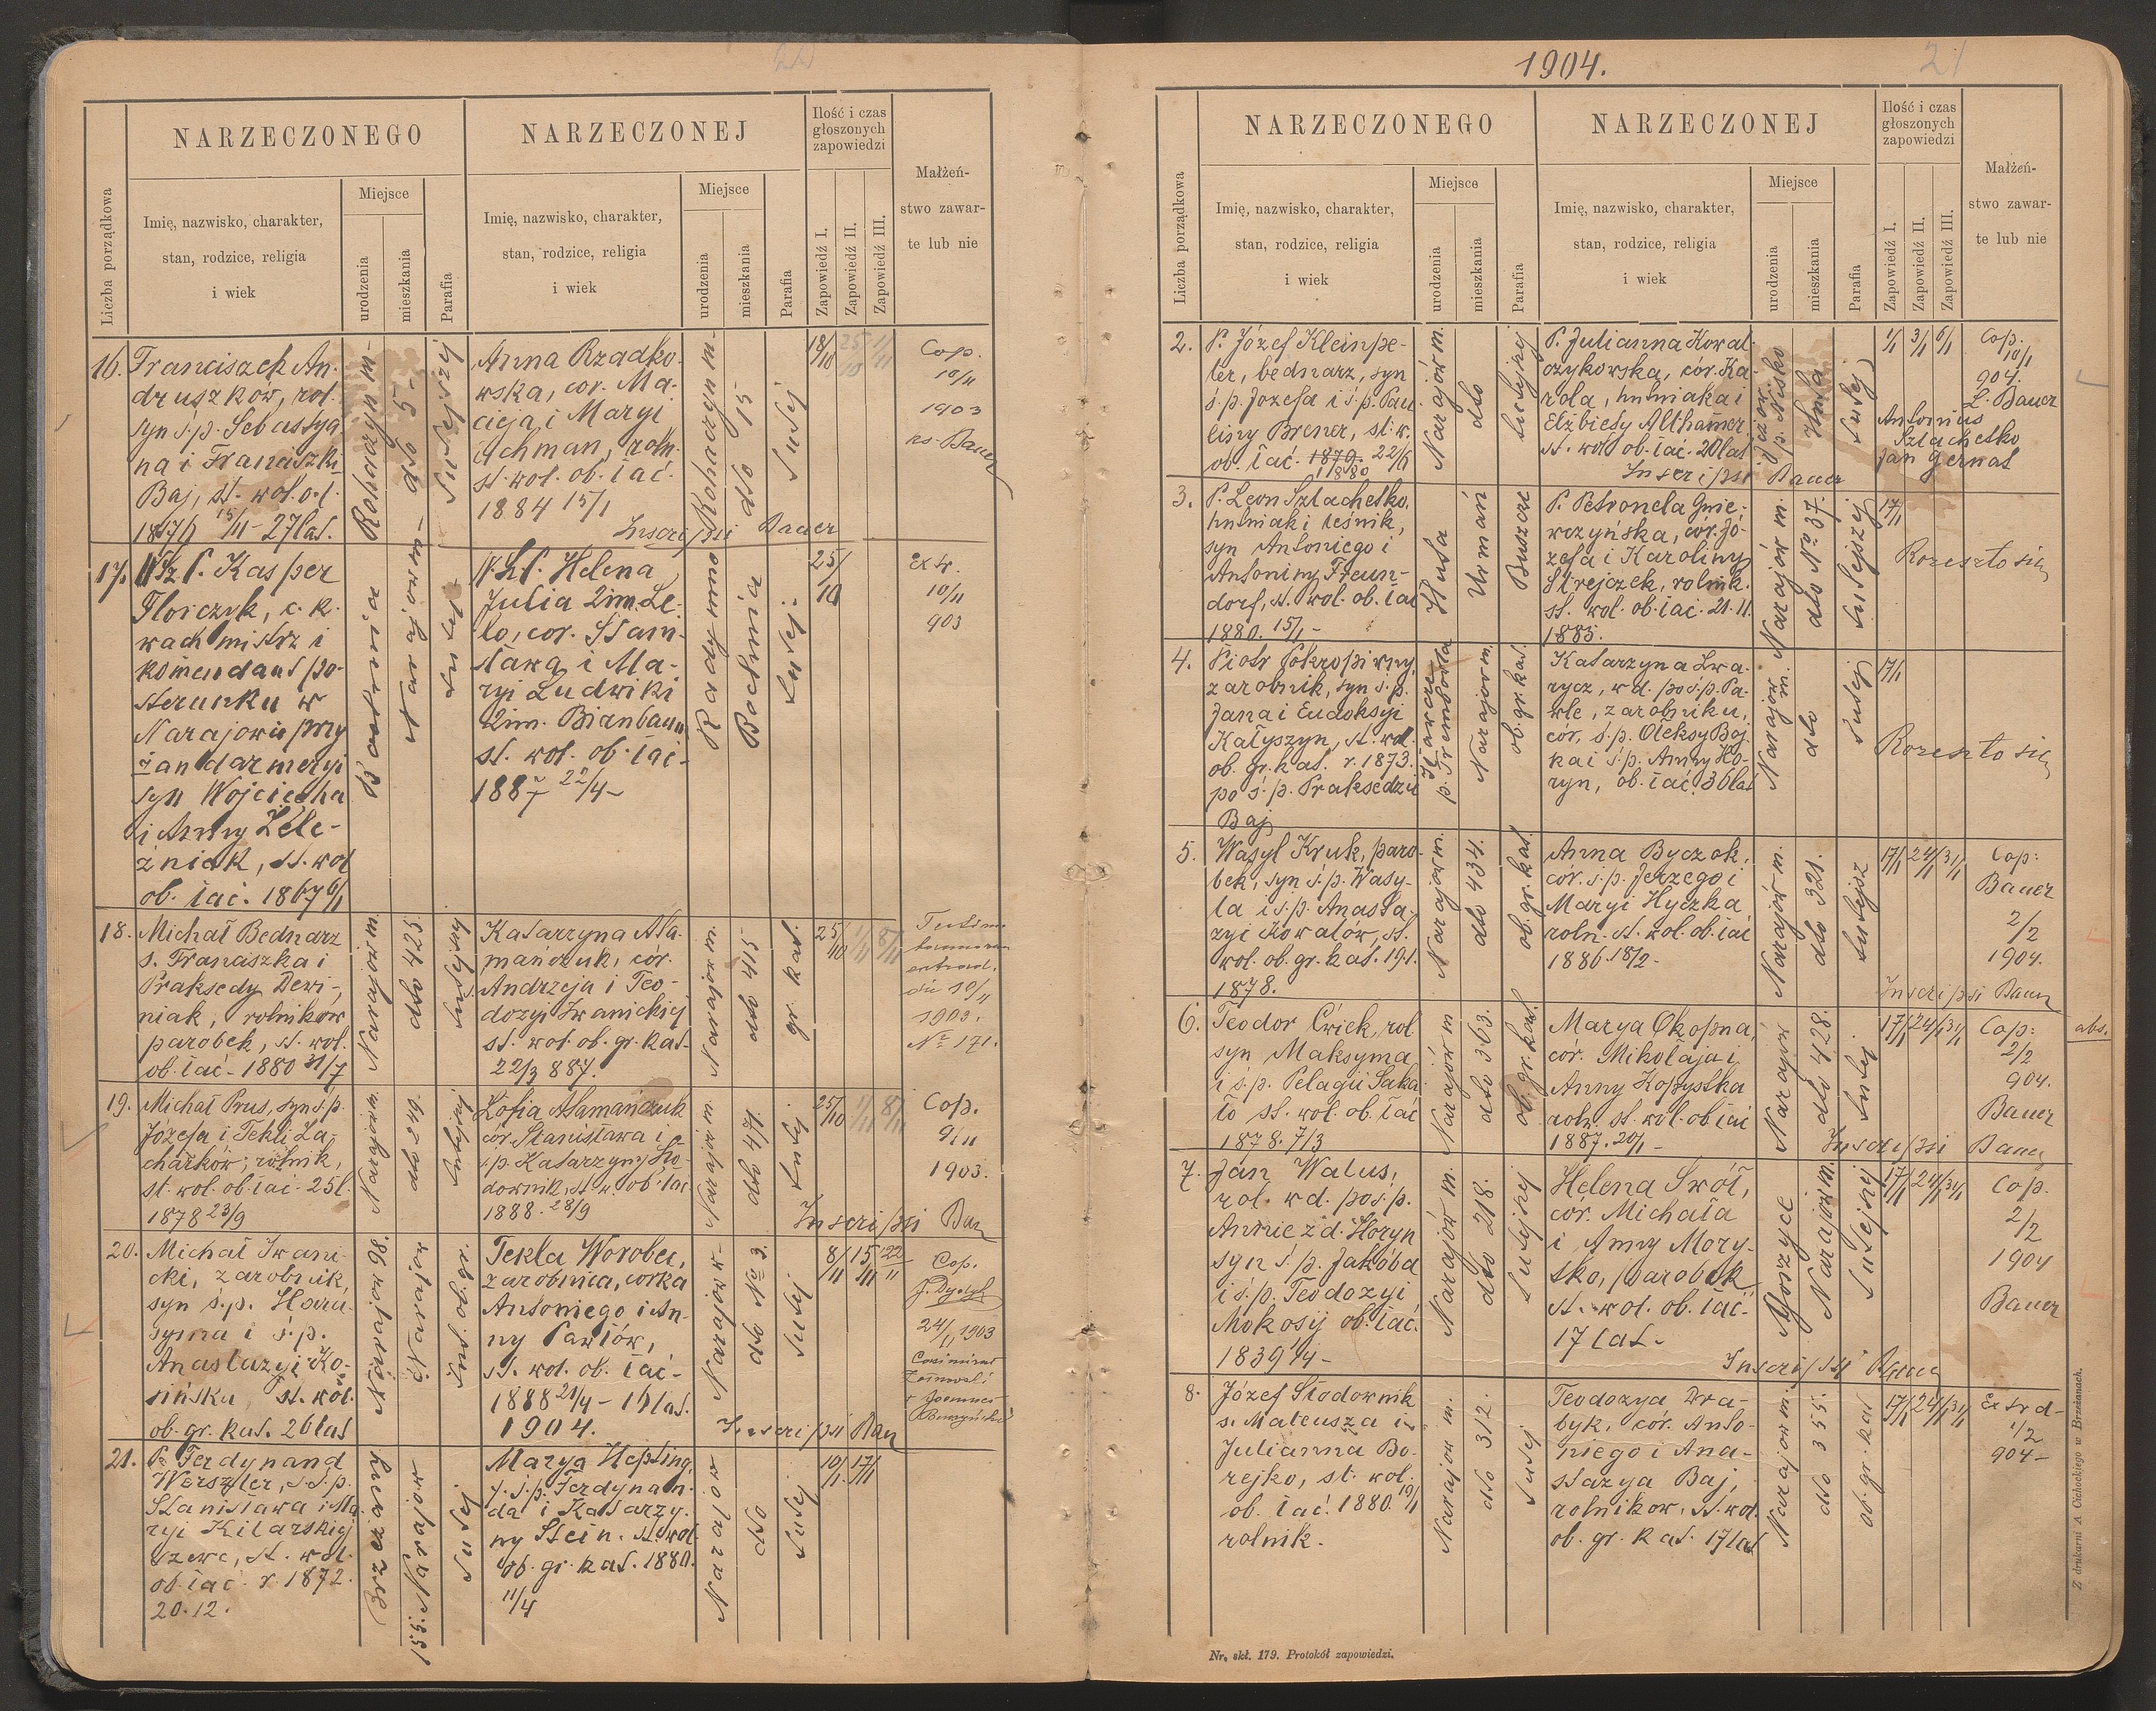 22
NARZECZONEGO
NARZECZONEJ
Ilość i czas
głoszonych
zapowiedzi
Małżeń-
stwo zawar-
te lub nie
Liczba porządkowa
Imię, nazwisko, charakter,
stan, rodzice, religia
i wiek
Miejsce
urodzenia
mieszkania
Parafia
Imię, nazwisko, charakter,
stan, rodzice, religia
i wiek
Miejsce
urodzenia
mieszkania
Parafia
Zapowiedź I.
Zapowiedź II.
Zapowiedź III.
16.
Franciszek An-
druszków, rol.
syn ś.p. Sebastya
na i Franciszki
Baj, st. wol. o. ł.
15/11 - 27 lat.
Rohaczyn m-
dto 5-
tutejszej
Anna Rzadko-
wska, cor. Ma-
cieja i Maryi
Achman, roln.
st. wol. ob. łać.
1884 15/1
Rohaczyn m-
dto 15
tutej
18/10 25/10 1/11
Cop.
10/11
1903
ks. Bauer
Inscripsi Bauer
17.
Kasper
Florczyk, c. k.
wachmistrz i
komendant po-
sterunku w
Narajowie przy
żandarmeryi
syn Wojciecha
i Anny Żele-
źniak, st. wol
ob. łać. 1867 6/1
Narajow m-
tutej-
Helena
Julia 2im. Le-
lo, cor. Stani-
sława i Ma-
ryi Ludwiki
2im. Bianbaum
st. wol. ob. łać-
1887 22/4-
Radymno
Bochnia
tutej-
25/10
Extr.
10/11
903
18.
Michał Bednarz
s. Franciszka i
Praksedy Dewi-
niak, rolnikow
parobek, st. wol.
ob. łać - 1880 31/7
Narajow m.
dto 425.
tutejszej
Katarzyna Ata-
mańczuk, cór.
Andrzeja i Teo-
dozyi Iwanickiej
st. wol. ob. gr. kat.
22/3 887.
Narajow m.
dto 415-
gr. kat.
25/10 1/11 8/11
Testim.
extrad.
die 10/11
1903.
No 171.
19.
Michał Prus, syn ś.p.
Józefa i Tekli Za-
charków, rolnik,
st. wol. ob. łać. 25 l.
1878 23/9
Narajow m.
dto 249.
tutejszej
Zofia Atamańczuk
cór. Stanisława i
ś.p. Katarzyny Sło-
downik, st. w. ob. łać
1888. 28/9
Narajow m.
dto 471.
tutej.
25/10 1/11 8/11
Cop.
9/11
1903.
Inscripsi Bau
20.
Michał Iwani-
cki, zarobnik,
syn ś.p. Hara-
syma i ś.p.
Anastazyi Ko-
sińska st. wol.
ob. gr. kat. 26 lat
Narajow 98.
Narajow
tut. ob. gr.
Tekla Worobec,
zarobnica, corka
Antoniego i An-
ny Pawłów,
st. wol. ob. łać-
1888 21/4 -
1904.
Narajow-
dto No 3.
tutej
8/11 15/11 22/11
Cop.
24/11 1903
Inscripsi Bau
21.
P. Ferdynand
Werszler, s. ś.p.
Stanisława i Ma-
ryi Kilarskiej
szewc, st. wol.
ob. łać. r. 1872.
20.12.
Brzeżany
155. Narajow
tutej
Marya Hepting,
ś.p. Ferdynan-
da i Katarzy-
ny Stein. st. wol
ob. gr. kat. 1880.
11/4
Narajow
dto
tutej
10/1 17/1
1904.
21
NARZECZONEGO
NARZECZONEJ
Ilość i czas
głoszonych
zapowiedzi
Małżeń-
stwo zawar-
te lub nie
Liczba porządkowa
Imię, nazwisko, charakter,
stan, rodzice, religia
i wiek
Miejsce
urodzenia
mieszkania
Parafia
Imię, nazwisko, charakter,
stan, rodzice, religia
i wiek
Miejsce
urodzenia
mieszkania
Parafia
Zapowiedź I.
Zapowiedź II.
Zapowiedź III.
2.
P. Józef Kleinpe-
ter, bednarz, syn
ś.p. Jozefa i ś.p. Pau
liny Brener, st. w.
ob. łać. 1879. 22/6
1880
Narajów m.
dto
tutejszej
P. Julianna Kowal-
czykowska, cór. Ka-
rola, hutniaka i
Elżbiety Althamer
st. wol. ob. łać. 20 lat
Jeżow
p. Nisko
Huta
tutej
1/1 3/1 6/1
Cop.
10/1
904.
Ł. Bauer
Antonius
Sztachetko
Jan Gernat
Inscripsi Bauer
3.
P. Leon Sztachetko,
hutniak i leśnik,
syn Antoniego i
Antoniny Freun-
dorf, st. wol. ob. łać
1880. 15/1 -
Huta
Urmań
Buszcze
P. Petronela Gnie-
wczyńska, cór. Jó-
zefa i Karoliny
Strejczek, rolnik.
st. wol. ob. łać. 21. 11.
1885.
Narajów m.
dto No 37.
tutejszej
17/1
Rozeszło się
4.
Piotr Pokropiwny,
zarobnik, syn ś.p.
Jana i Eudoksyi
Kałyszyn, st. wd.
ob. gr. kat. r. 1873.
po ś.p. Praksedzie
Baj
p. Trembowla
Narajow m.
ob. gr. kat.
Katarzyna Lwa-
rycz, wd. po ś.p. Pa-
wle, zarobniku,
cór. ś.p. Oleksy Boj
ka i ś.p. Anny Ho-
ryn, ob. łać. 36 lat
Narajow m.
dto
tutej
17/1
Rozeszło się
5.
Wasyl Kruk, paro-
bek, syn ś.p. Wasy-
la i ś.p. Anasta-
zyi Kowalów, st.
wol. ob. gr. kat. 19.1.
1878.
Narajow m.
dto 434.
ob. gr. kat.
Anna Byczok,
cor. ś.p. Jerzego i
Maryi Hyczka
roln. st. wol. ob. łać
1886 18/2-
Narajów m.
dto 321.
tutejsz
17/1 24/1 31/1
Cop:
Bauer
2/2
1904.
Inscripsi Bauer
6.
Teodor Ćwiek, rol
syn Maksyma
i ś.p. Pelagii Saka-
ło st. wol. ob. łać
1878. 7/3
Narajów m
dto 363.
ob. gr. kat.
Marya Okopna,
cór. Mikołaja i
Anny Kopystka
roln. st. wol. ob. łać
1887. 20/1 -
Narajów
dto 428.
tutej
17/1 24/1 31/1
Cop:
2/2
904.
Bauer
abs.
Inscripsi Bauer
7.
Jan Walus,
rol. wd. po ś.p.
Annie z d. Horyn
syn ś.p. Jakóba
i ś.p. Teodozyi
Mokosij ob. łać.
1839
Narajów m.
dto 218.
tutejszej
Helena Swół,
cor. Michała
i Anny Mory-
sko, parobek
st. wol. ob. łać-
17 lat-
Gorzyce
Narajow m.
tutejszej
17/1 24/1 31/1
Cop.
2/2
1904
Bauer
Inscripsi Bauer
8.
Józef Słodownik
s. Mateusza i
Julianna Bo-
rejko, st. wol.
ob. łać. 1880. 19/1
rolnik.
Narajow m.
dto 312.
tutej
Teodozya Dra-
byk, cór. Anto-
niego i Ana-
stazya Baj,
rolnikow, st. wol.
ob. gr. kat. 17 lat
Narajow m.
dto 355.
ob. gr. kat
17/1 24/1 31/1
Extrd-
1/2
904-
Nr. skł. 179. Protokół zapowiedzi.
Z drukarni A Cichockiego w Brzeżanach.